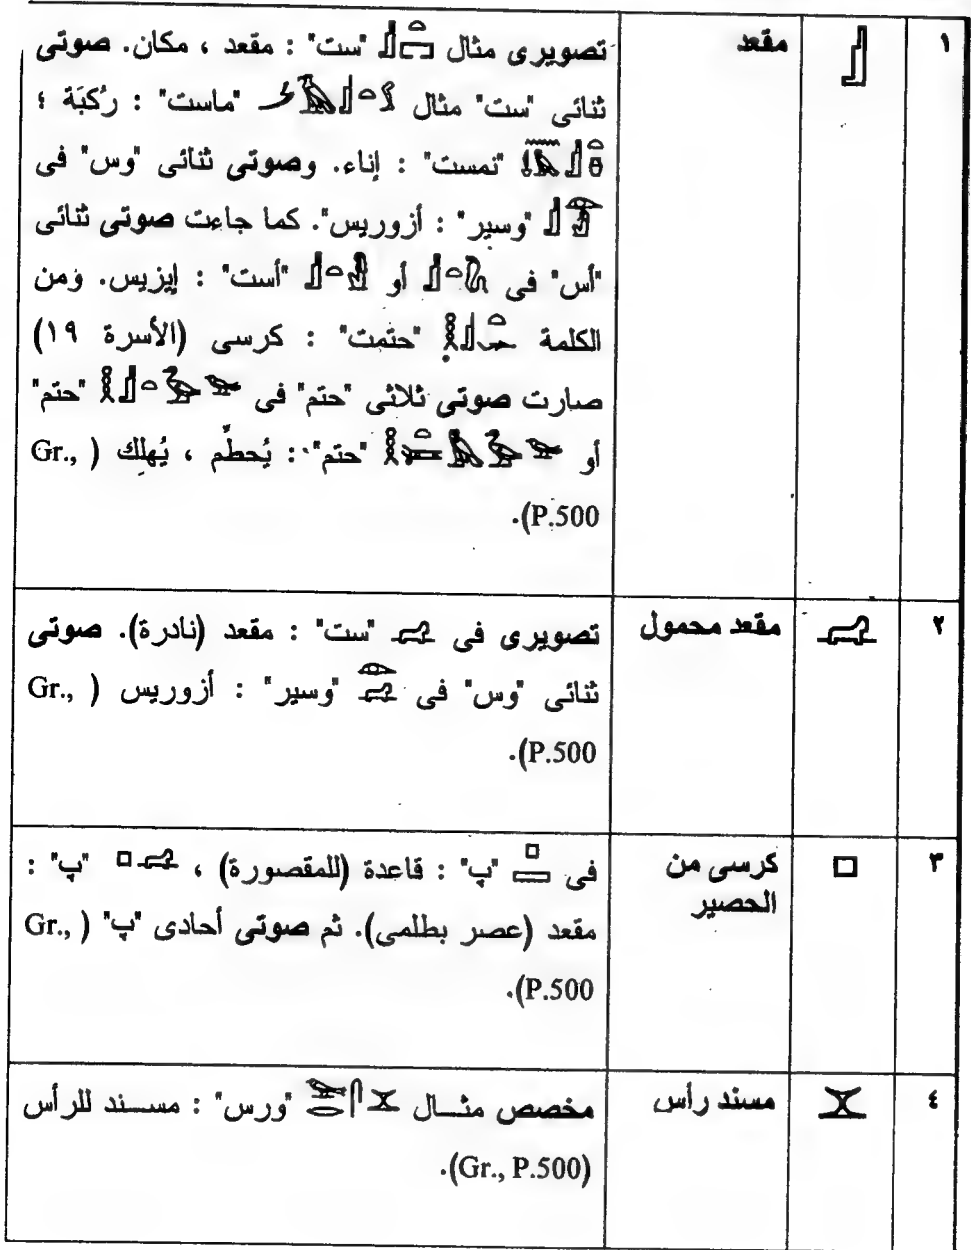 ١ مقعد تصويرى مثال "ست" : مقعد ، مكان. صوتى
ثنائى "ست" مثال "ماست" : رُكبَة ؛
"نمست" : إناء. وصوتى ثنائى "وس" فى
"وسير" : أزوريس". كما جاءت صوتى ثنائى
"أس" فى أو "أست" : إيزيس. ومن
الكلمة "حتمت" : كرسى (الأسرة ١٩)
صارت صوتى ثلاثى "حتم" فى "حتم"
أو "حتم" : يُحطِّم ، يُهلِك (Gr.,
P.500).
٢ مقعد محمول تصويرى فى "ست" : مقعد (نادرة). صوتى
ثنائى "وس" فى "وسير" : أزوريس (Gr.,
P.500).
٣ كرسى من فى "پ" : قاعدة (للمقصورة) ، "پ" :
الحصير مقعد (عصر بطلمى). ثم صوتى أحادى "پ" (Gr.,
P.500).
٤ مسند رأس مخصص مثال "ورس" : مسند للرأس
(Gr., P.500).